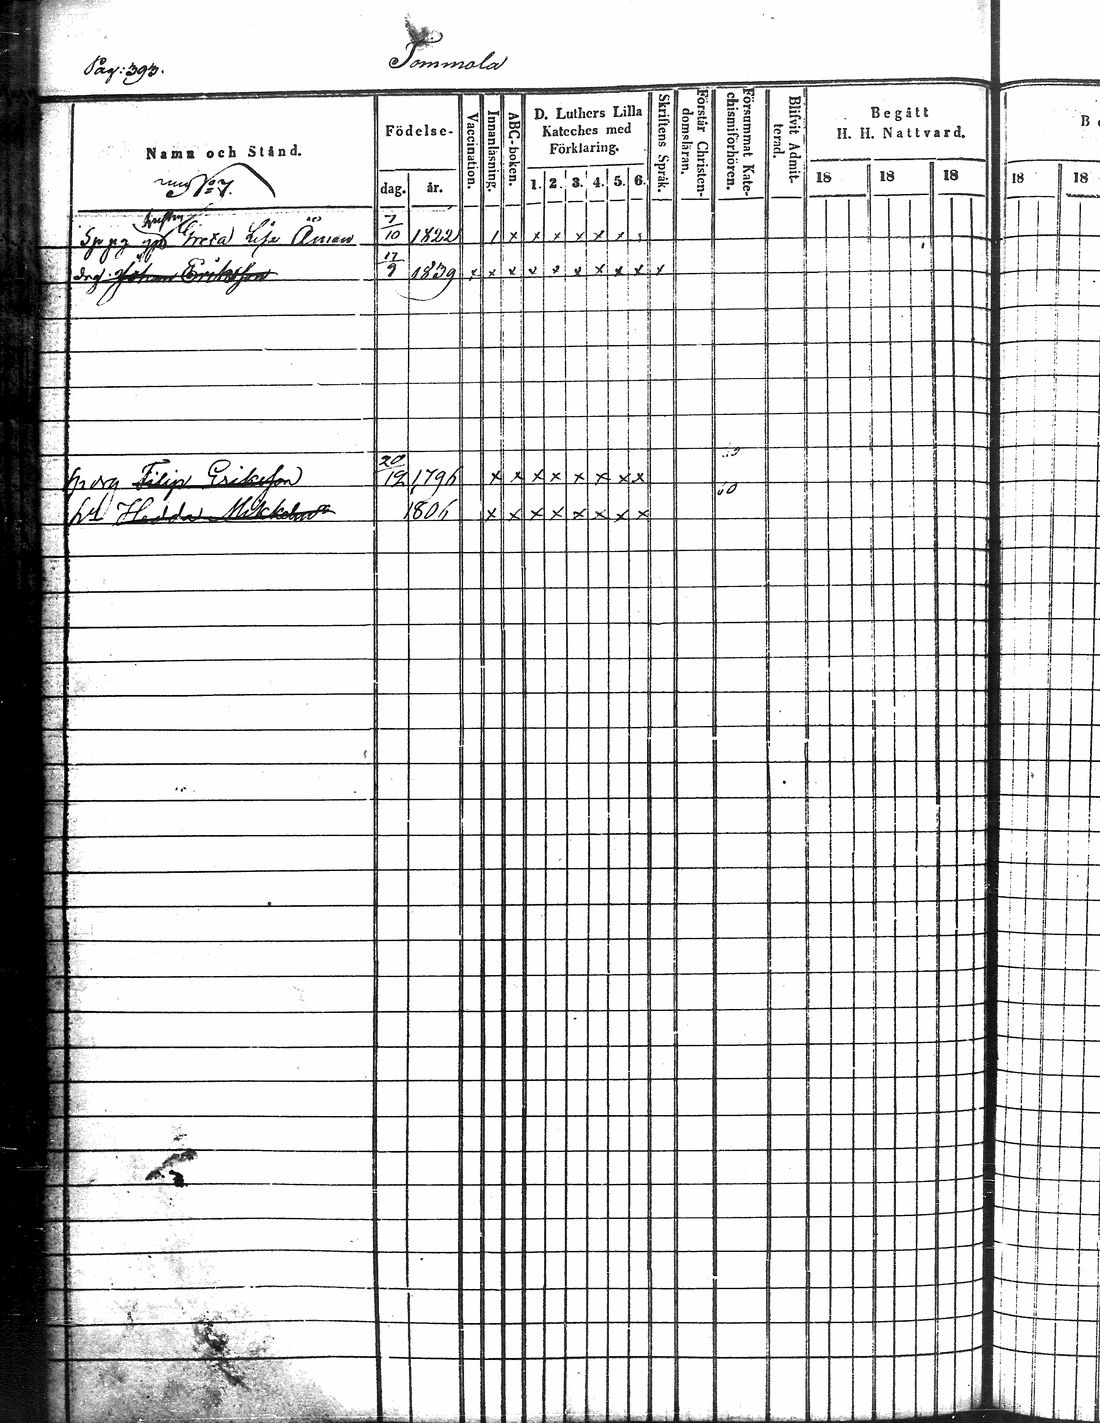 Pag: 393.
Tommola
Namn och Stånd.
Födelse-
dag. år.
Vaccination.
Innanläsning.
ABC-boken.
D. Luthers Lilla
Kateches med
Förklaring.
1. 2. 3. 4. 5. 6.
Skriftens Språk.
Förstår Christen-
domsläran.
Försummat Kate-
chismiförhören.
Blifvit Admit-
terad.
Begått
H. H. Nattvard.
18 18 18
18 18
No 7.
Greta Lisa Åman 7/10 1822 x x x x x x
drg. Johan Eriksson 17/9 1839 x x x x x x x x x x
Filip Eriksson 20/12 1796 x x x x x x x x
Hedda 1806 x x x x x x x x